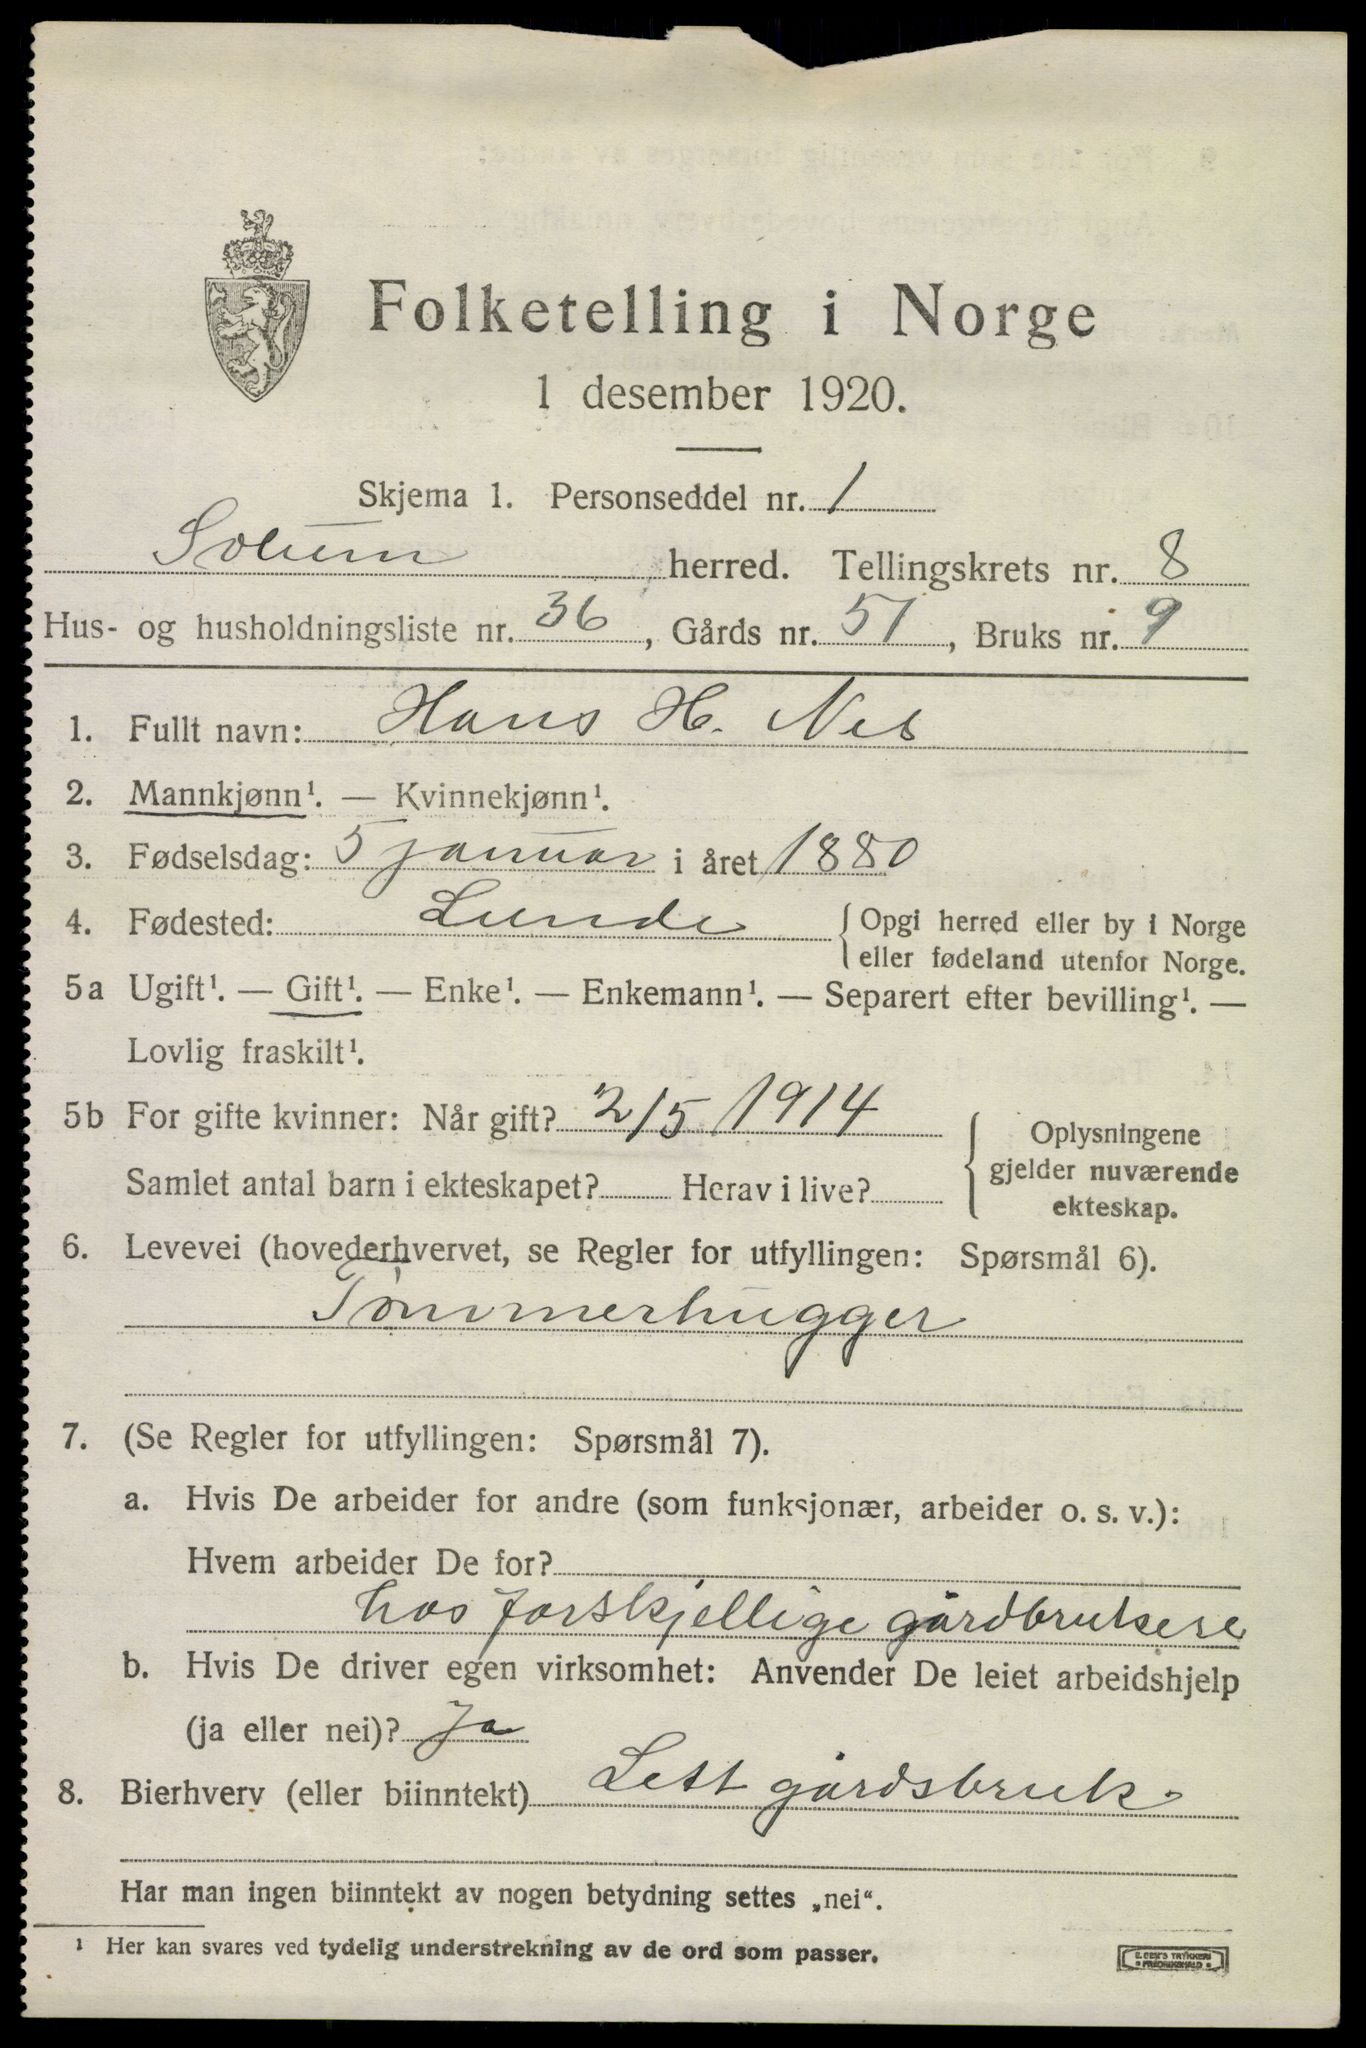 Folketelling i Norge
1 desember 1920.
Skjema 1. Personseddel nr. 1
Solum herred. Tellingskrets nr. 8
Hus- og husholdningsliste nr. 36, Gårds nr. 51, Bruks nr. 9
1. Fullt navn: Hans H. Nes
2. Mannkjønn¹. — Kvinnekjønn¹.
3. Fødselsdag: 5 januar i året 1880
4. Fødested: Lunde { Opgi herred eller by i Norge
eller fødeland utenfor Norge.
5a Ugift¹. — Gift¹. — Enke¹. — Enkemann¹. — Separert efter bevilling¹. —
Lovlig fraskilt¹.
5b For gifte kvinner: Når gift? 2/5 1914
Samlet antal barn i ekteskapet? Herav i live?
Oplysningene
gjelder nuværende
ekteskap.
6. Levevei (hovederhvervet, se Regler for utfyllingen: Spørsmål 6).
Tømmerhugger
7. (Se Regler for utfyllingen: Spørsmål 7).
a. Hvis De arbeider for andre (som funksjonær, arbeider o. s. v.):
Hvem arbeider De for?
hos forskjellige gårdbrukere
b. Hvis De driver egen virksomhet: Anvender De leiet arbeidshjelp
(ja eller nei)? Ja
8. Bierhverv (eller biinntekt) Lett gårdsbruk
Har man ingen biinntekt av nogen betydning settes „nei“.
¹ Her kan svares ved tydelig understrekning av de ord som passer.
E. SEM'S TRYKKERI
FREDRIKSHALD